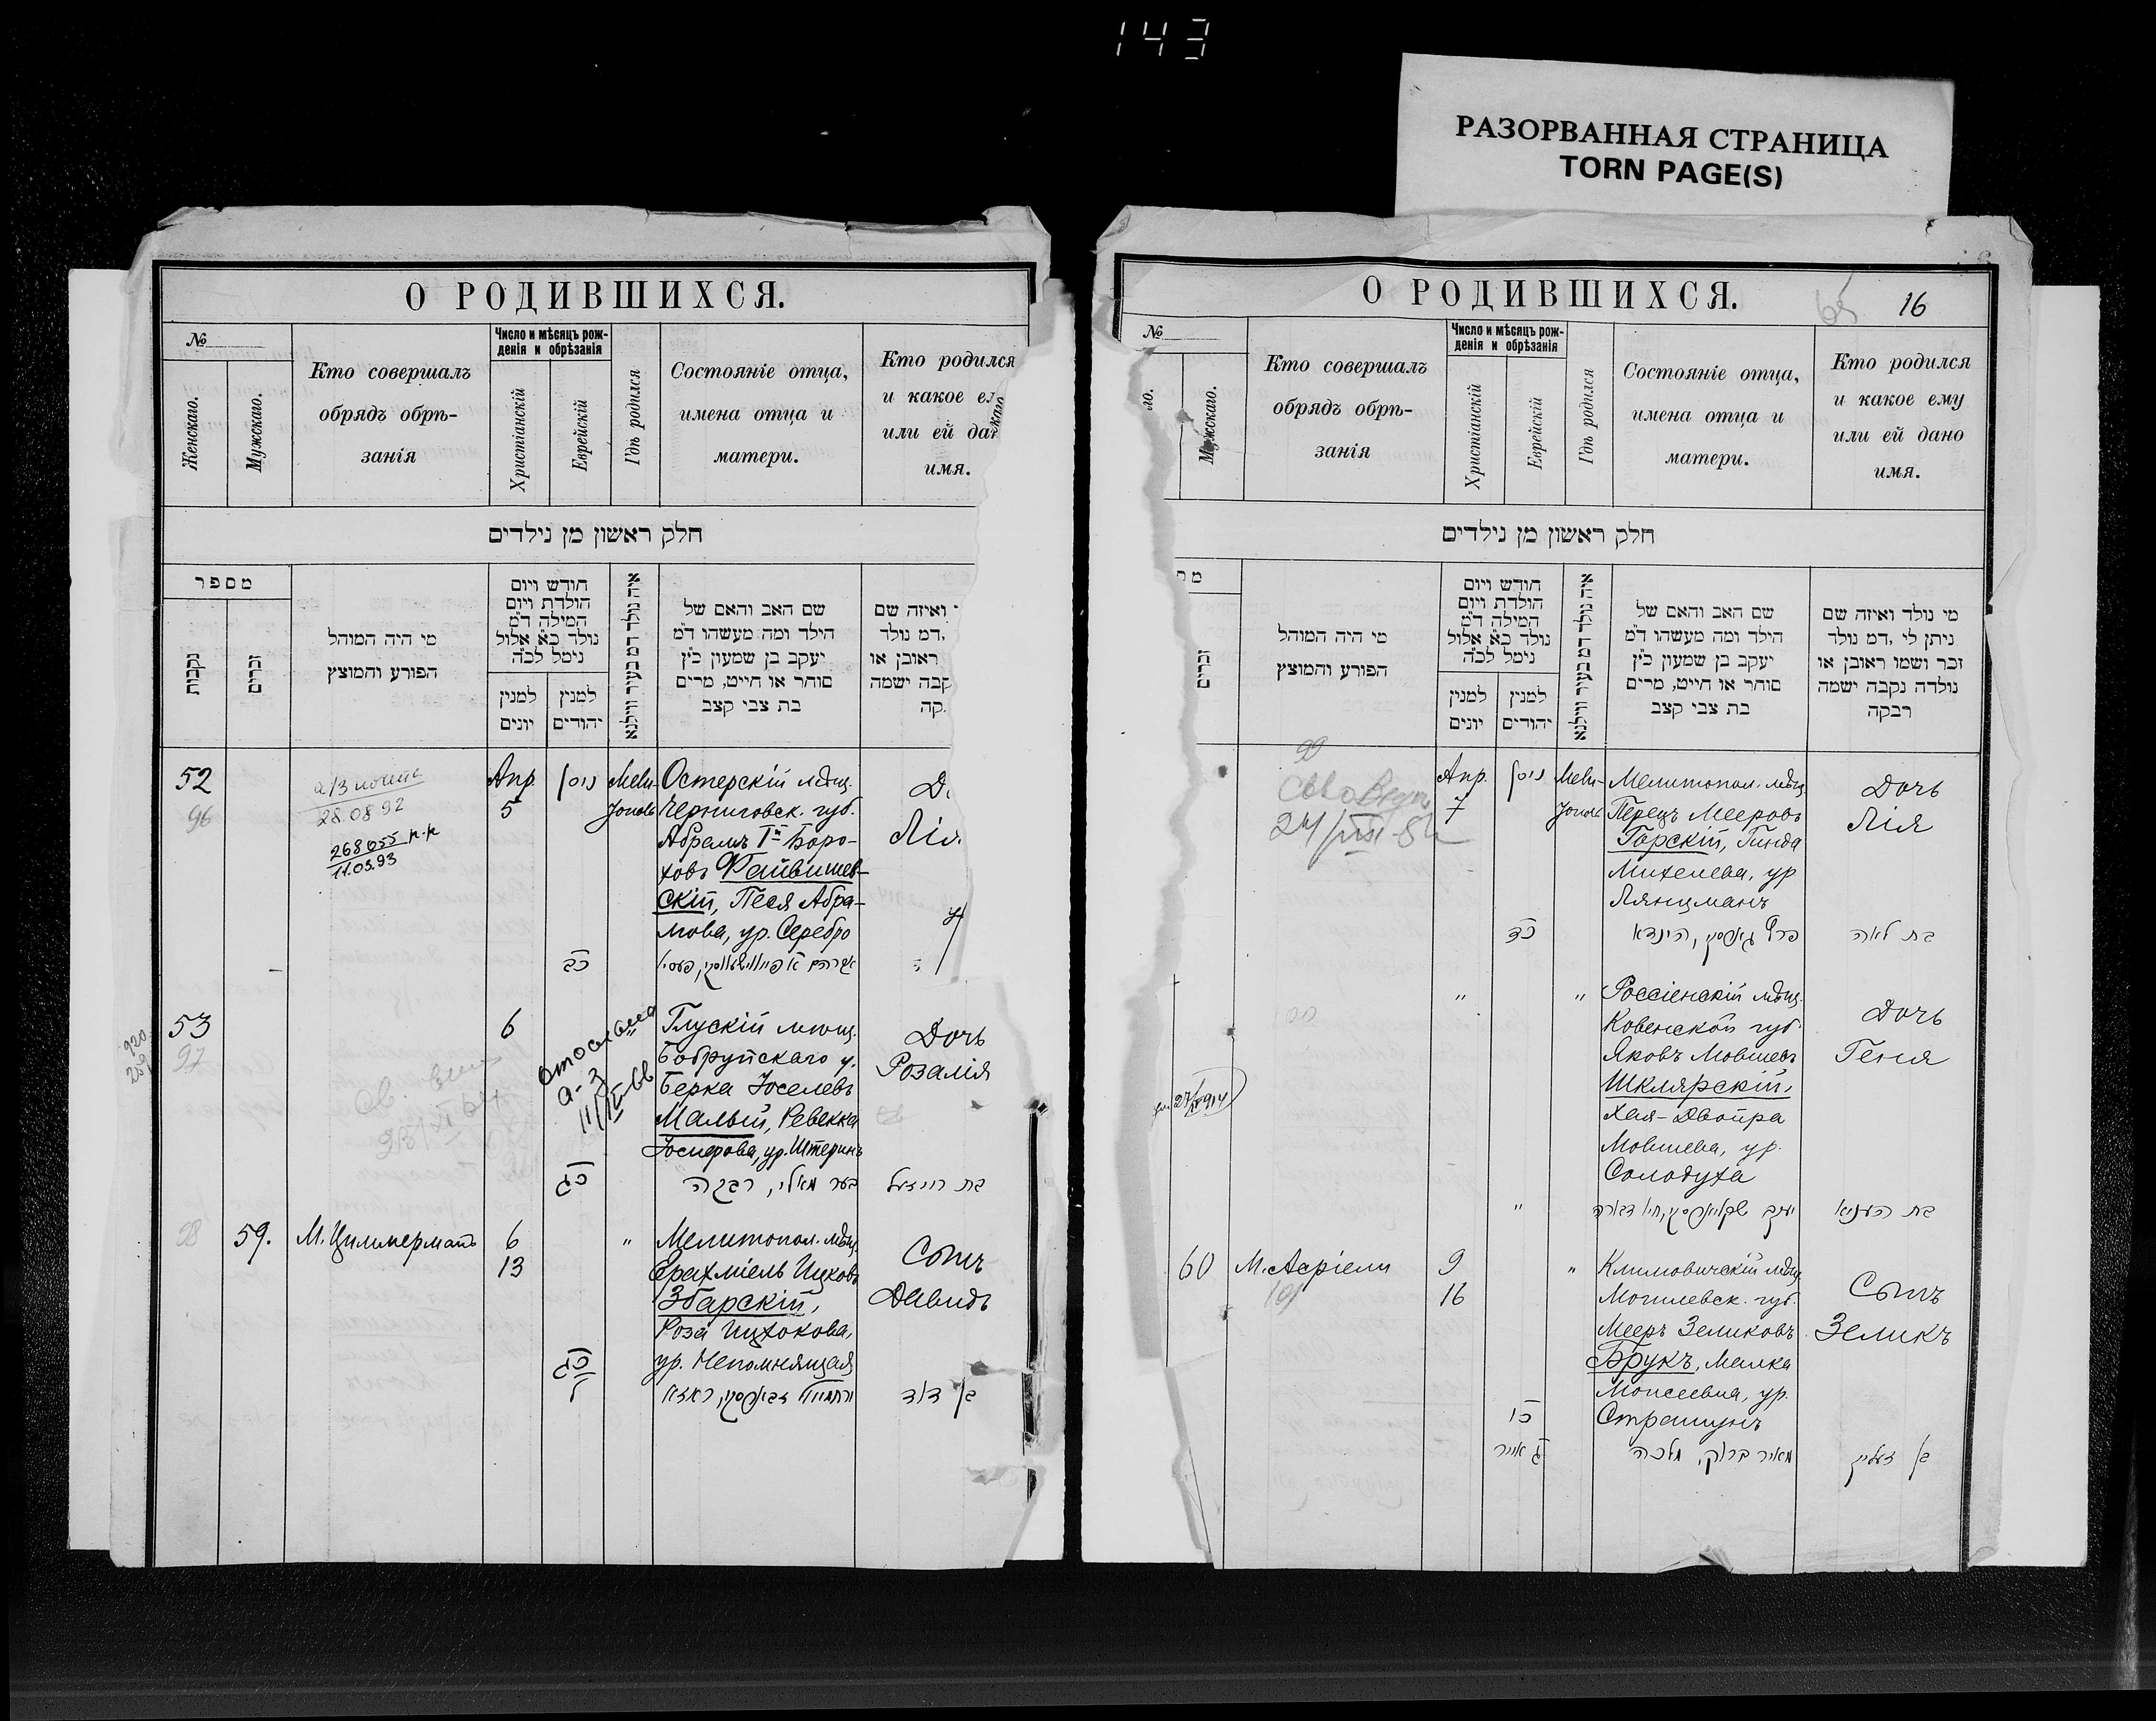 143
РАЗОРВАННАЯ СТРАНИЦА
TORN PAGE(S)
О РОДИВШИХСЯ.
№
Женскаго.
Мужскаго.
Кто совершалъ
обрядъ обрѣ-
занія
Число и мѣсяцъ рож-
денія и обрѣзанія
Христіанскій
Еврейскій
Гдѣ родился
Состояніе отца,
имена отца и
матери.
Кто родился
и какое
или ей
имя.
חלק ראשון מן נילדים
מספר
נקבות
זכרים
מי היה המוהל
הפורע והמוצץ
חודש ויום
הולדת ויום
המילה ד״מ
נולד כ״א אלול
נימל לכ״ה
למנין
יונים
למנין
יהודים
איה נולד דמ בעיר ווילנא
שם האב והאם של
הילד ומה מעשהו ד״מ
יעקב בן שמעון כ״ץ
סוחר או חייט, מרים
בת צבי קצב
ואיזה שם
דמ נולד
ראובן או
קבה ישמה
קה
52
96
28.08.92
268055 р-р
11.03.93
Апр.
5
ניסן
כב
Мели-
тополь
Остерскій мѣщ.
Черниговск. губ.
Абрамъ Гⁿ Боро-
ховъ Файвишев-
скій, Песя Абра-
мова, ур. Серебро
Д
Лія
53
97
6
отослана
а-3
כג
Глускій мѣщ.
Бобруйскаго у.
Берка Іоселевъ
Малый, Ревекка
Іосифова, ур. Штеринъ
בער מאלי, רבקה
Дочь
Розалія
בת רויזעל
98
59.
М. Циммерманъ
6
13
כג
ל
"
Мелитопол. мѣщ.
Ерахміель Ицковъ
Збарскій,
Роза Ицхокова,
ур. Непомнящая
ירחמיאל זבארסקי, ראזא
Сынъ
Давидъ
בן דוד
О РОДИВШИХСЯ.
16
№
Мужскаго.
Кто совершалъ
обрядъ обрѣ-
занія
Число и мѣсяцъ рож-
денія и обрѣзанія
Христіанскій
Еврейскій
Гдѣ родился
Состояніе отца,
имена отца и
матери.
Кто родился
и какое ему
или ей дано
имя.
חלק ראשון מן נילדים
זכרים
מי היה המוהל
הפורע והמוצץ
חודש ויום
הולדת ויום
המילה ד״מ
נולד כ״א אלול
נימל לכ״ה
למנין
יונים
למנין
יהודים
איה נולד דמ בעיר ווילנא
שם האב והאם של
הילד ומה מעשהו ד״מ
יעקב בן שמעון כ״ץ
סוחר או חייט, מרים
בת צבי קצב
מי נולד ואיזה שם
ניתן לי, דמ נולד
זכר ושמו ראובן או
נולדה נקבה ישמה
רבקה
99
Апр.
7
ניסן
כד
Мели-
тополь
Мелитопол. мѣщ.
Перецъ Мееровъ
Горскій, Гинда
Михелева, ур
Лянцманъ
פרץ גארסקי, הינדא
Дочь
Лія
בת לאה
"
"
"
Россіенскій мѣщ.
Ковенской губ.
Яковъ Мовшевъ
Шклярскій,
Хая-Двойра
Мовшева, ур.
Солодуха
יעקב שקליארסקי, חיה דבורה
Дочь
Геня
בת העניא
60
М. Асріели
101
9
16
כו
ג אייר
"
Климовичскій мѣщ.
Могилевск. губ.
Мееръ Зеликовъ
Брукъ, Малка
Моисеевна, ур.
Страшунъ
מאיר ברוק, מלכה
Сынъ
Зеликъ
בן זעליק